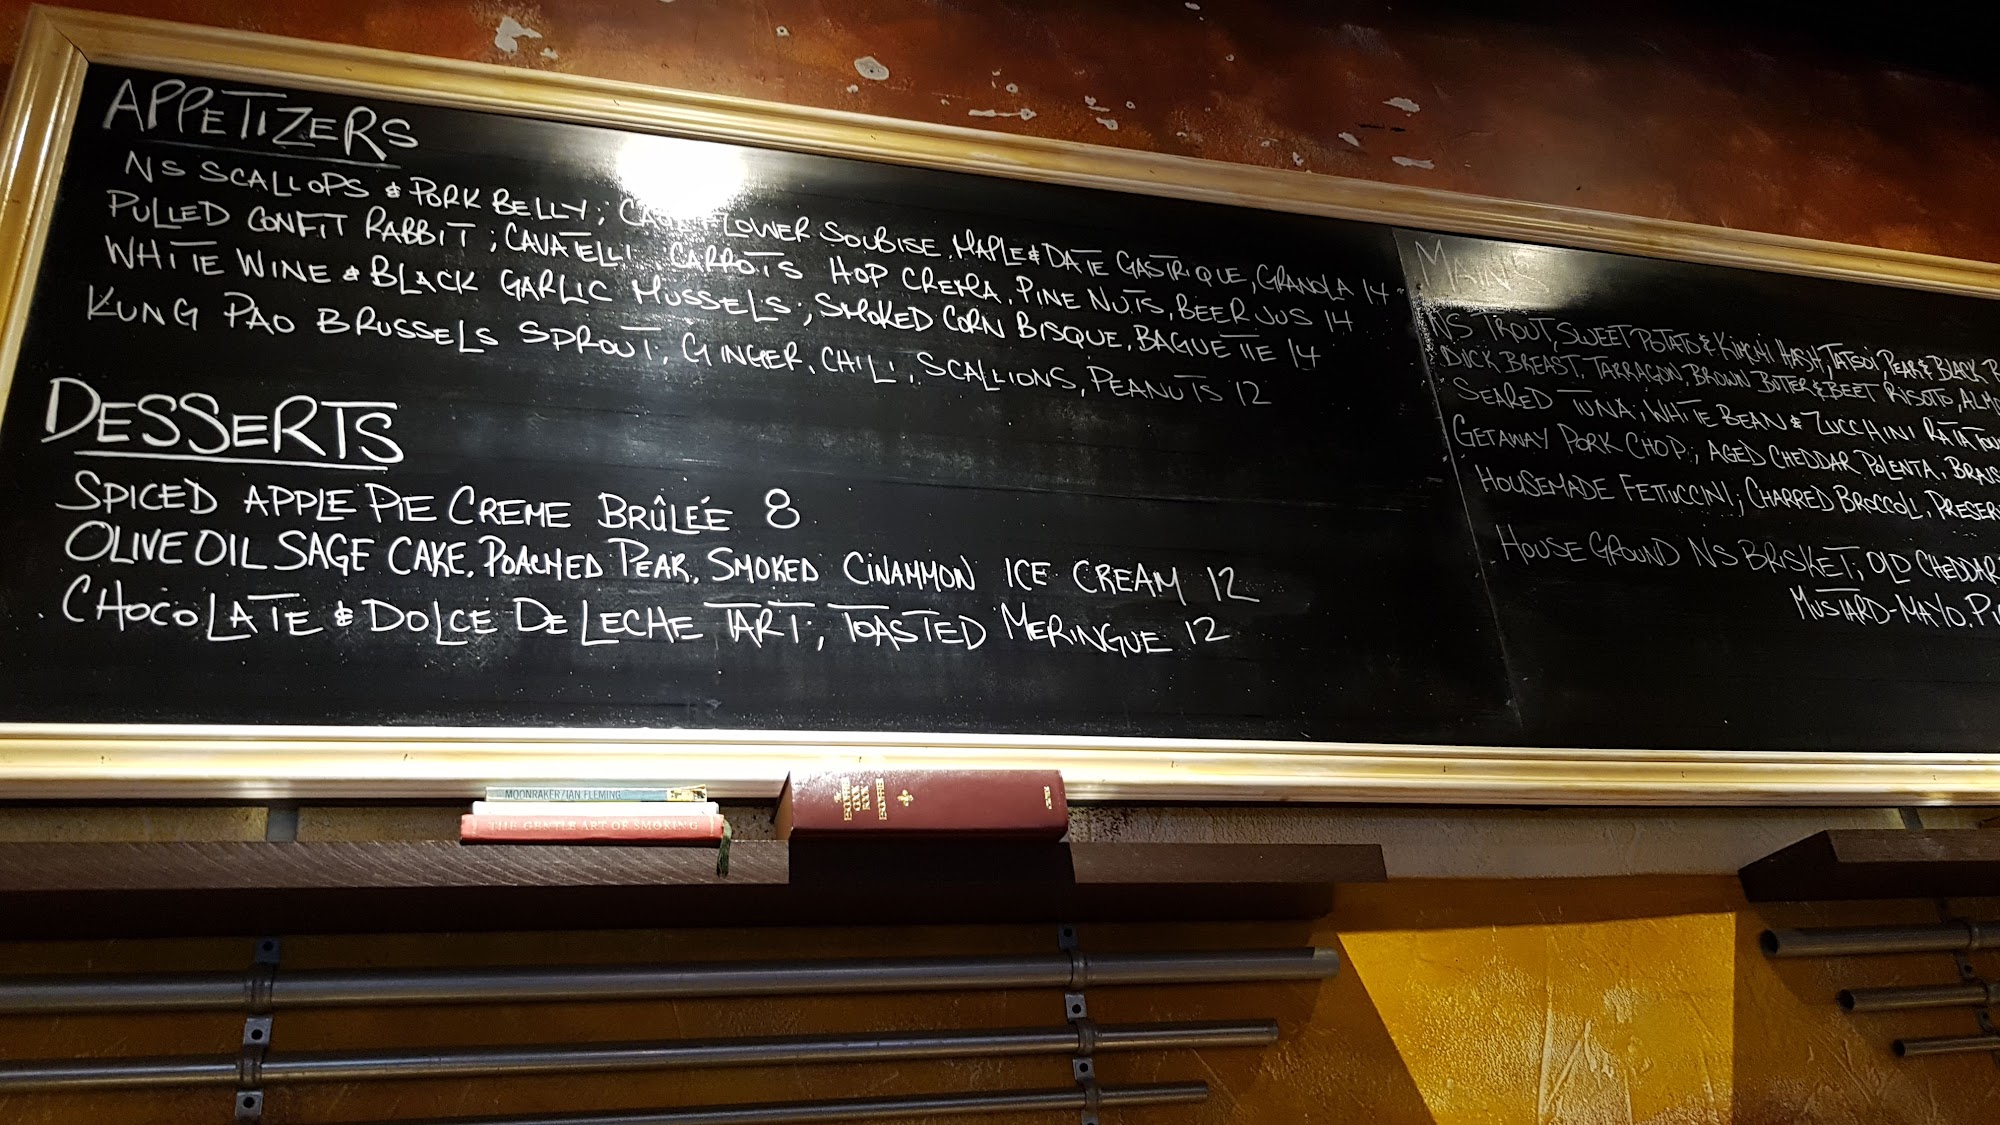 APPETIZERS
NS SCALLOPS & PORK BELLY; CAULIFLOWER SOUBISE, MAPLE & DATE GASTRIQUE, GRANOLA 14
PULLED CONFIT RABBIT; CAVATELLI, CARROTS HOP CREMA, PINE NUTS, BEER JUS 14
WHITE WINE & BLACK GARLIC MUSSELS; SMOKED CORN BISQUE, BAGUETTE 14
KUNG PAO BRUSSELS SPROUT, GINGER, CHILI, SCALLIONS, PEANUTS 12
DESSERTS
SPICED APPLE PIE CREME BRÛLÉE 8
OLIVE OIL SAGE CAKE, POACHED PEAR, SMOKED CINAMMON ICE CREAM 12
CHOCOLATE & DOLCE DE LECHE TART; TOASTED MERINGUE 12
MAINS
NS TROUT, SWEET POTATO & KIMCHI HASH, TATSOI, PEAR & BLACK
DUCK BREAST, TARRAGON, BROWN BUTTER & BEET RISOTTO,
SEARED TUNA; WHITE BEAN & ZUCCHINI
GETAWAY PORK CHOP; AGED CHEDDAR POLENTA,
HOUSEMADE FETTUCCINI; CHARRED BROCCOLI,
HOUSE GROUND NS BRISKET, OLD CHEDDAR
MUSTARD-MAYO,
MOONRAKER/IAN FLEMING
THE GENTLE ART OF SMOKING